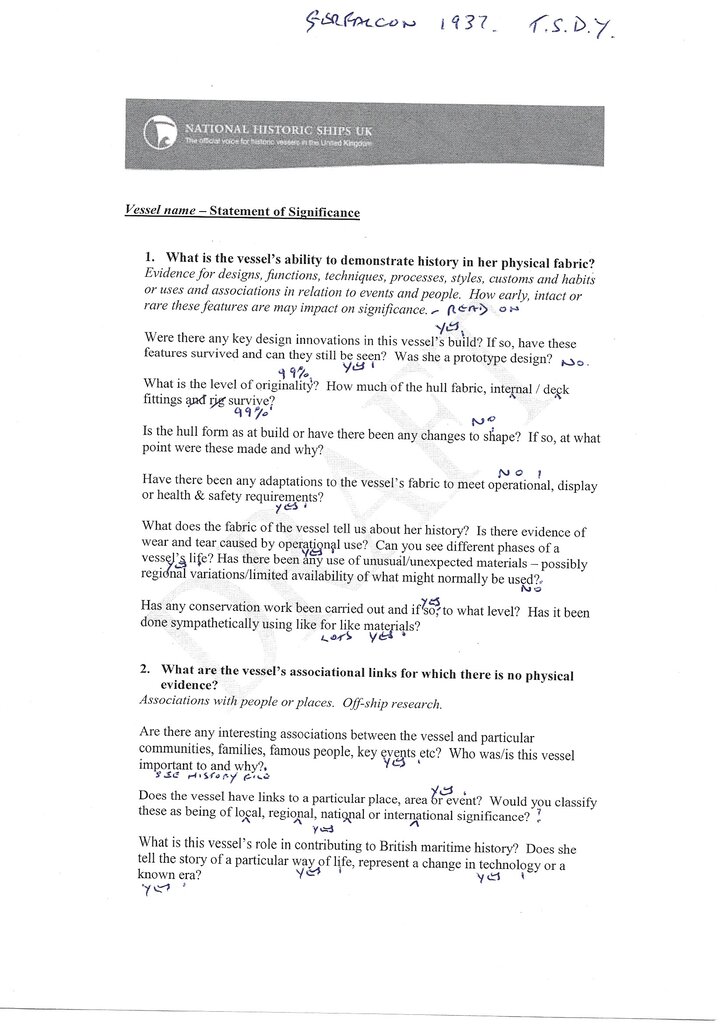 GERFALCON 1937. T.S.D.Y.
NATIONAL HISTORIC SHIPS UK
The official voice for historic vessels in the United Kingdom
Vessel name – Statement of Significance
1. What is the vessel's ability to demonstrate history in her physical fabric?
Evidence for designs, functions, techniques, processes, styles, customs and habits
or uses and associations in relation to events and people. How early, intact or
rare these features are may impact on significance. – READ ON
YES,
Were there any key design innovations in this vessel's build? If so, have these
features survived and can they still be seen? Was she a prototype design? NO.
99%. YES!
What is the level of originality? How much of the hull fabric, internal / deck
fittings and rig survive?
99%
NO
Is the hull form as at build or have there been any changes to shape? If so, at what
point were these made and why?
NO!
Have there been any adaptations to the vessel's fabric to meet operational, display
or health & safety requirements?
YES!
What does the fabric of the vessel tell us about her history? Is there evidence of
wear and tear caused by operational use? Can you see different phases of a
YES!
vessel's life? Has there been any use of unusual/unexpected materials – possibly
YES!
regional variations/limited availability of what might normally be used?
NO
YES
Has any conservation work been carried out and if so, to what level? Has it been
done sympathetically using like for like materials?
LOTS YES!
2. What are the vessel's associational links for which there is no physical
evidence?
Associations with people or places. Off-ship research.
Are there any interesting associations between the vessel and particular
communities, families, famous people, key events etc? Who was/is this vessel
important to and why?. YES!
SEE HISTORY FILE
YES.
Does the vessel have links to a particular place, area or event? Would you classify
these as being of local, regional, national or international significance? ?
YES
What is this vessel's role in contributing to British maritime history? Does she
tell the story of a particular way of life, represent a change in technology or a
known era? YES! YES!
YES!
DRAFT